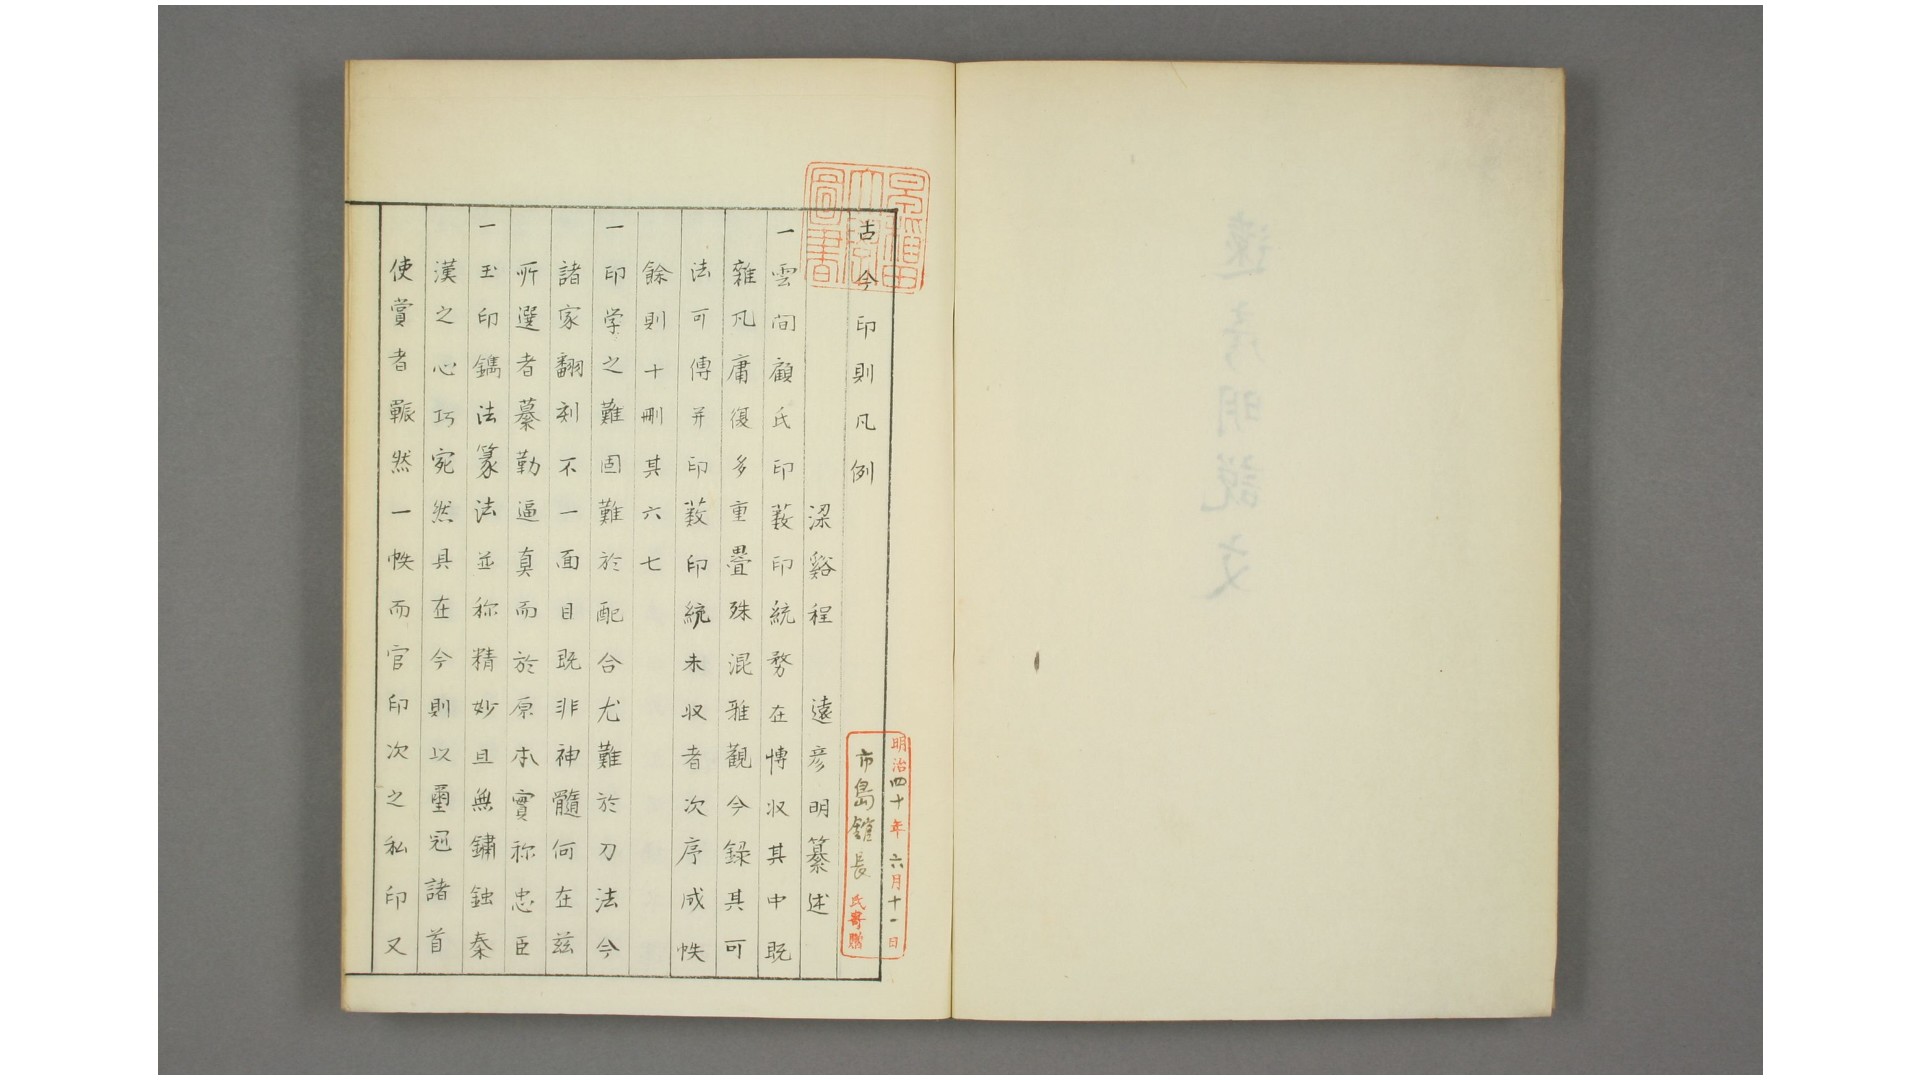 古今印則凡例
梁谿程　遠彦明纂述
一雲間顧氏印薮印統務在博収其中既
雜凡庸復多重疊殊混雅觀今録其可
法可傳并印薮印統未収者次序成帙
餘則十刪其六七
一印学之難固難於配合尤難於刀法今
諸家翻刻不一面目既非神髓何在茲
所選者摹勒逼真而於原本實称忠臣
一玉印鐫法篆法並称精妙且無鏽蝕秦
漢之心巧宛然具在今則以璽冠諸首
使賞者囅然一帙而官印次之私印又
早稲田大學圖書
明治四十年六月十一日
市島館長氏寄贈
遠彦明説文